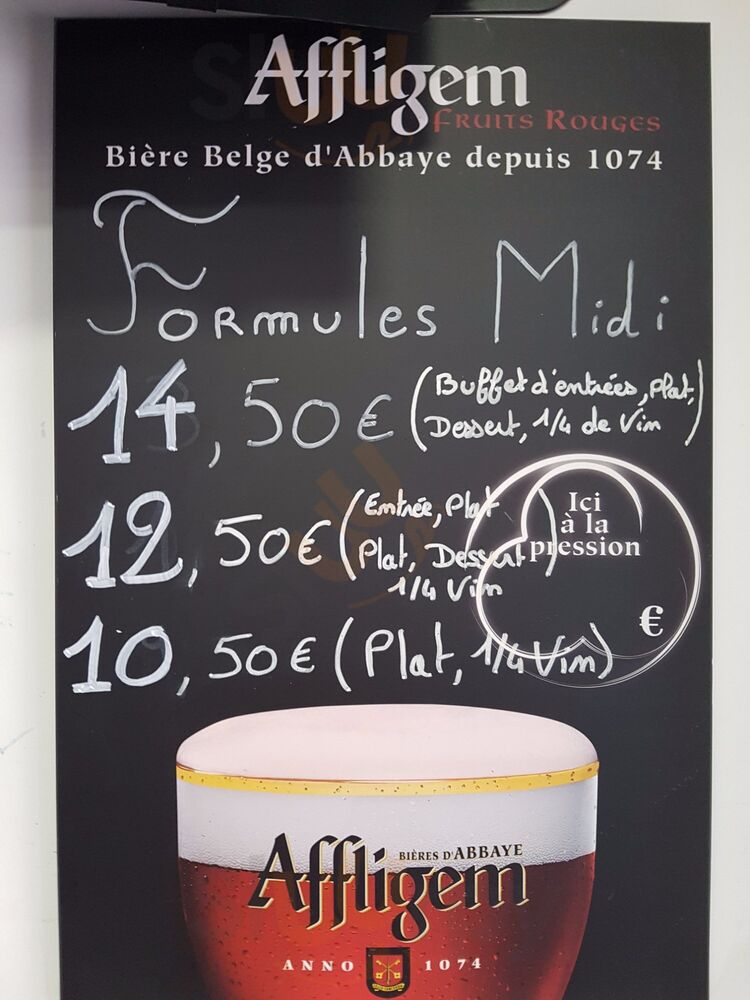 Affligem
FRUITS ROUGES
Bière Belge d'Abbaye depuis 1074
Formules Midi
14,50€ (Buffet d'entrées, Plat,
Dessert, 1/4 de Vin)
12,50€ (Entrée, Plat
Plat, Dessert)
1/4 Vin
Ici
à la
pression
€
10,50€ (Plat, 1/4 Vin)
BIÈRES D'ABBAYE
Affligem
ANNO 1074